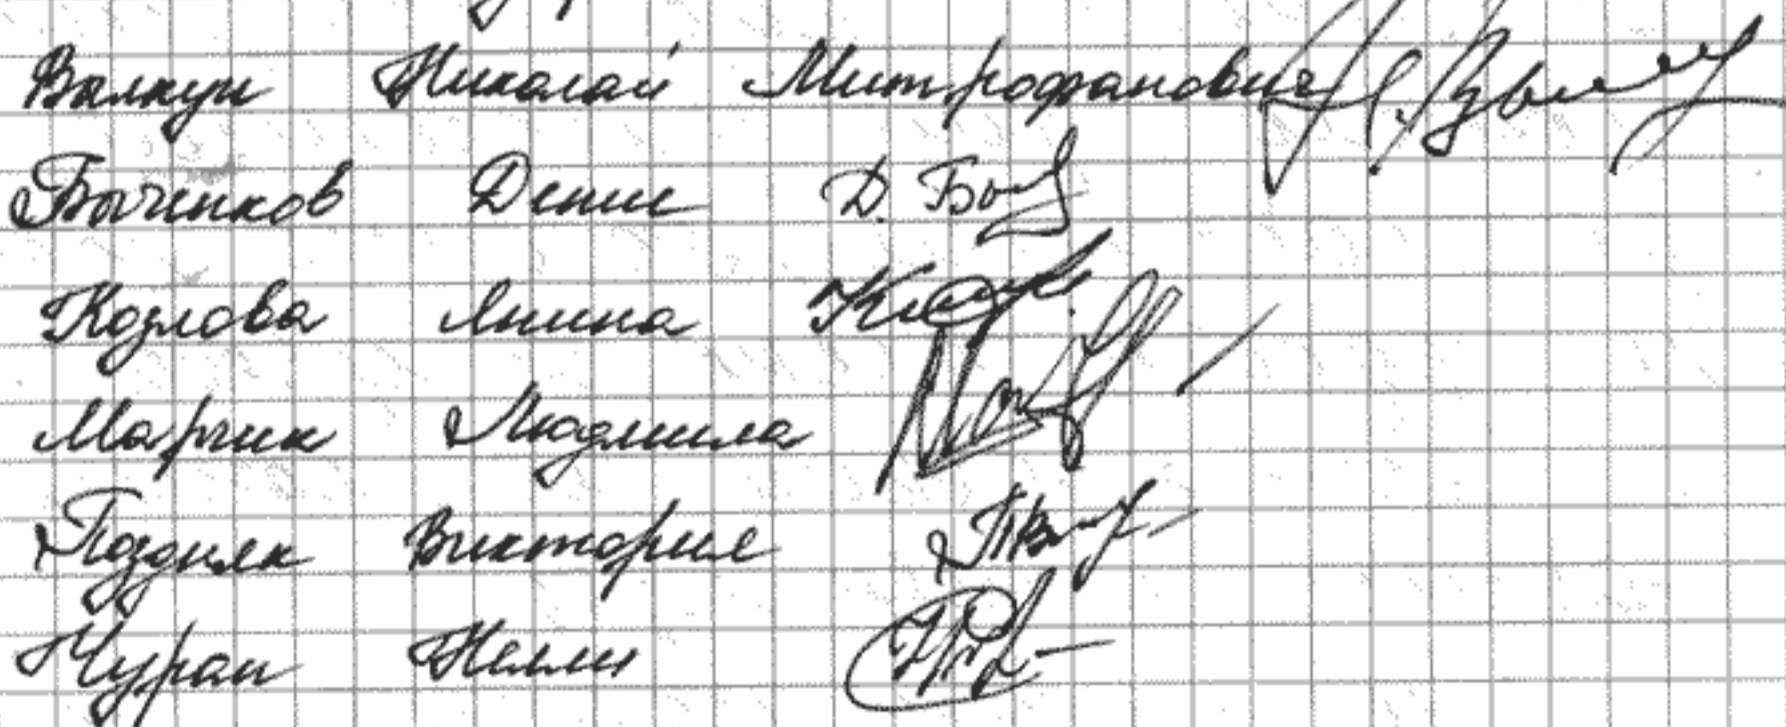 Валкун Николай Митрофанович
Быченков Денис Д. Быч
Козлова Янина
Марчик Людмила
Поздняк Виктория
Чуран Нелли